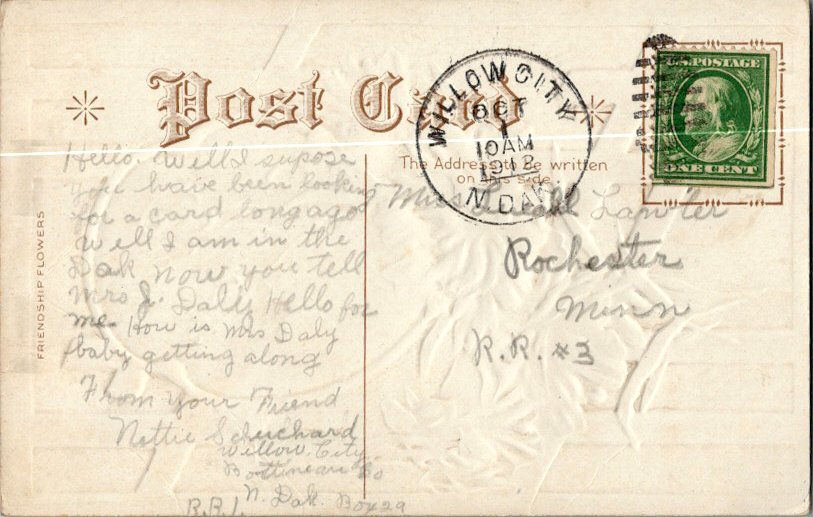 Post Card
WILLOW CITY
OCT
1
10AM
1912
N. DAK.
U.S. POSTAGE
ONE CENT
The Address to be written
on this side
FRIENDSHIP FLOWERS
Hello. Well I supose
you have been looking
for a card long ago
Well I am in the
Dak now you tell
Mrs J. Daly Hello for
me. How is Mrs Daly
baby getting along
From your Friend
Nettie Schuchard
Willow City
Bottineau Co
N. Dak. Box 29
R.R.1.
Miss Lawler
Rochester
Minn
R.R. #3